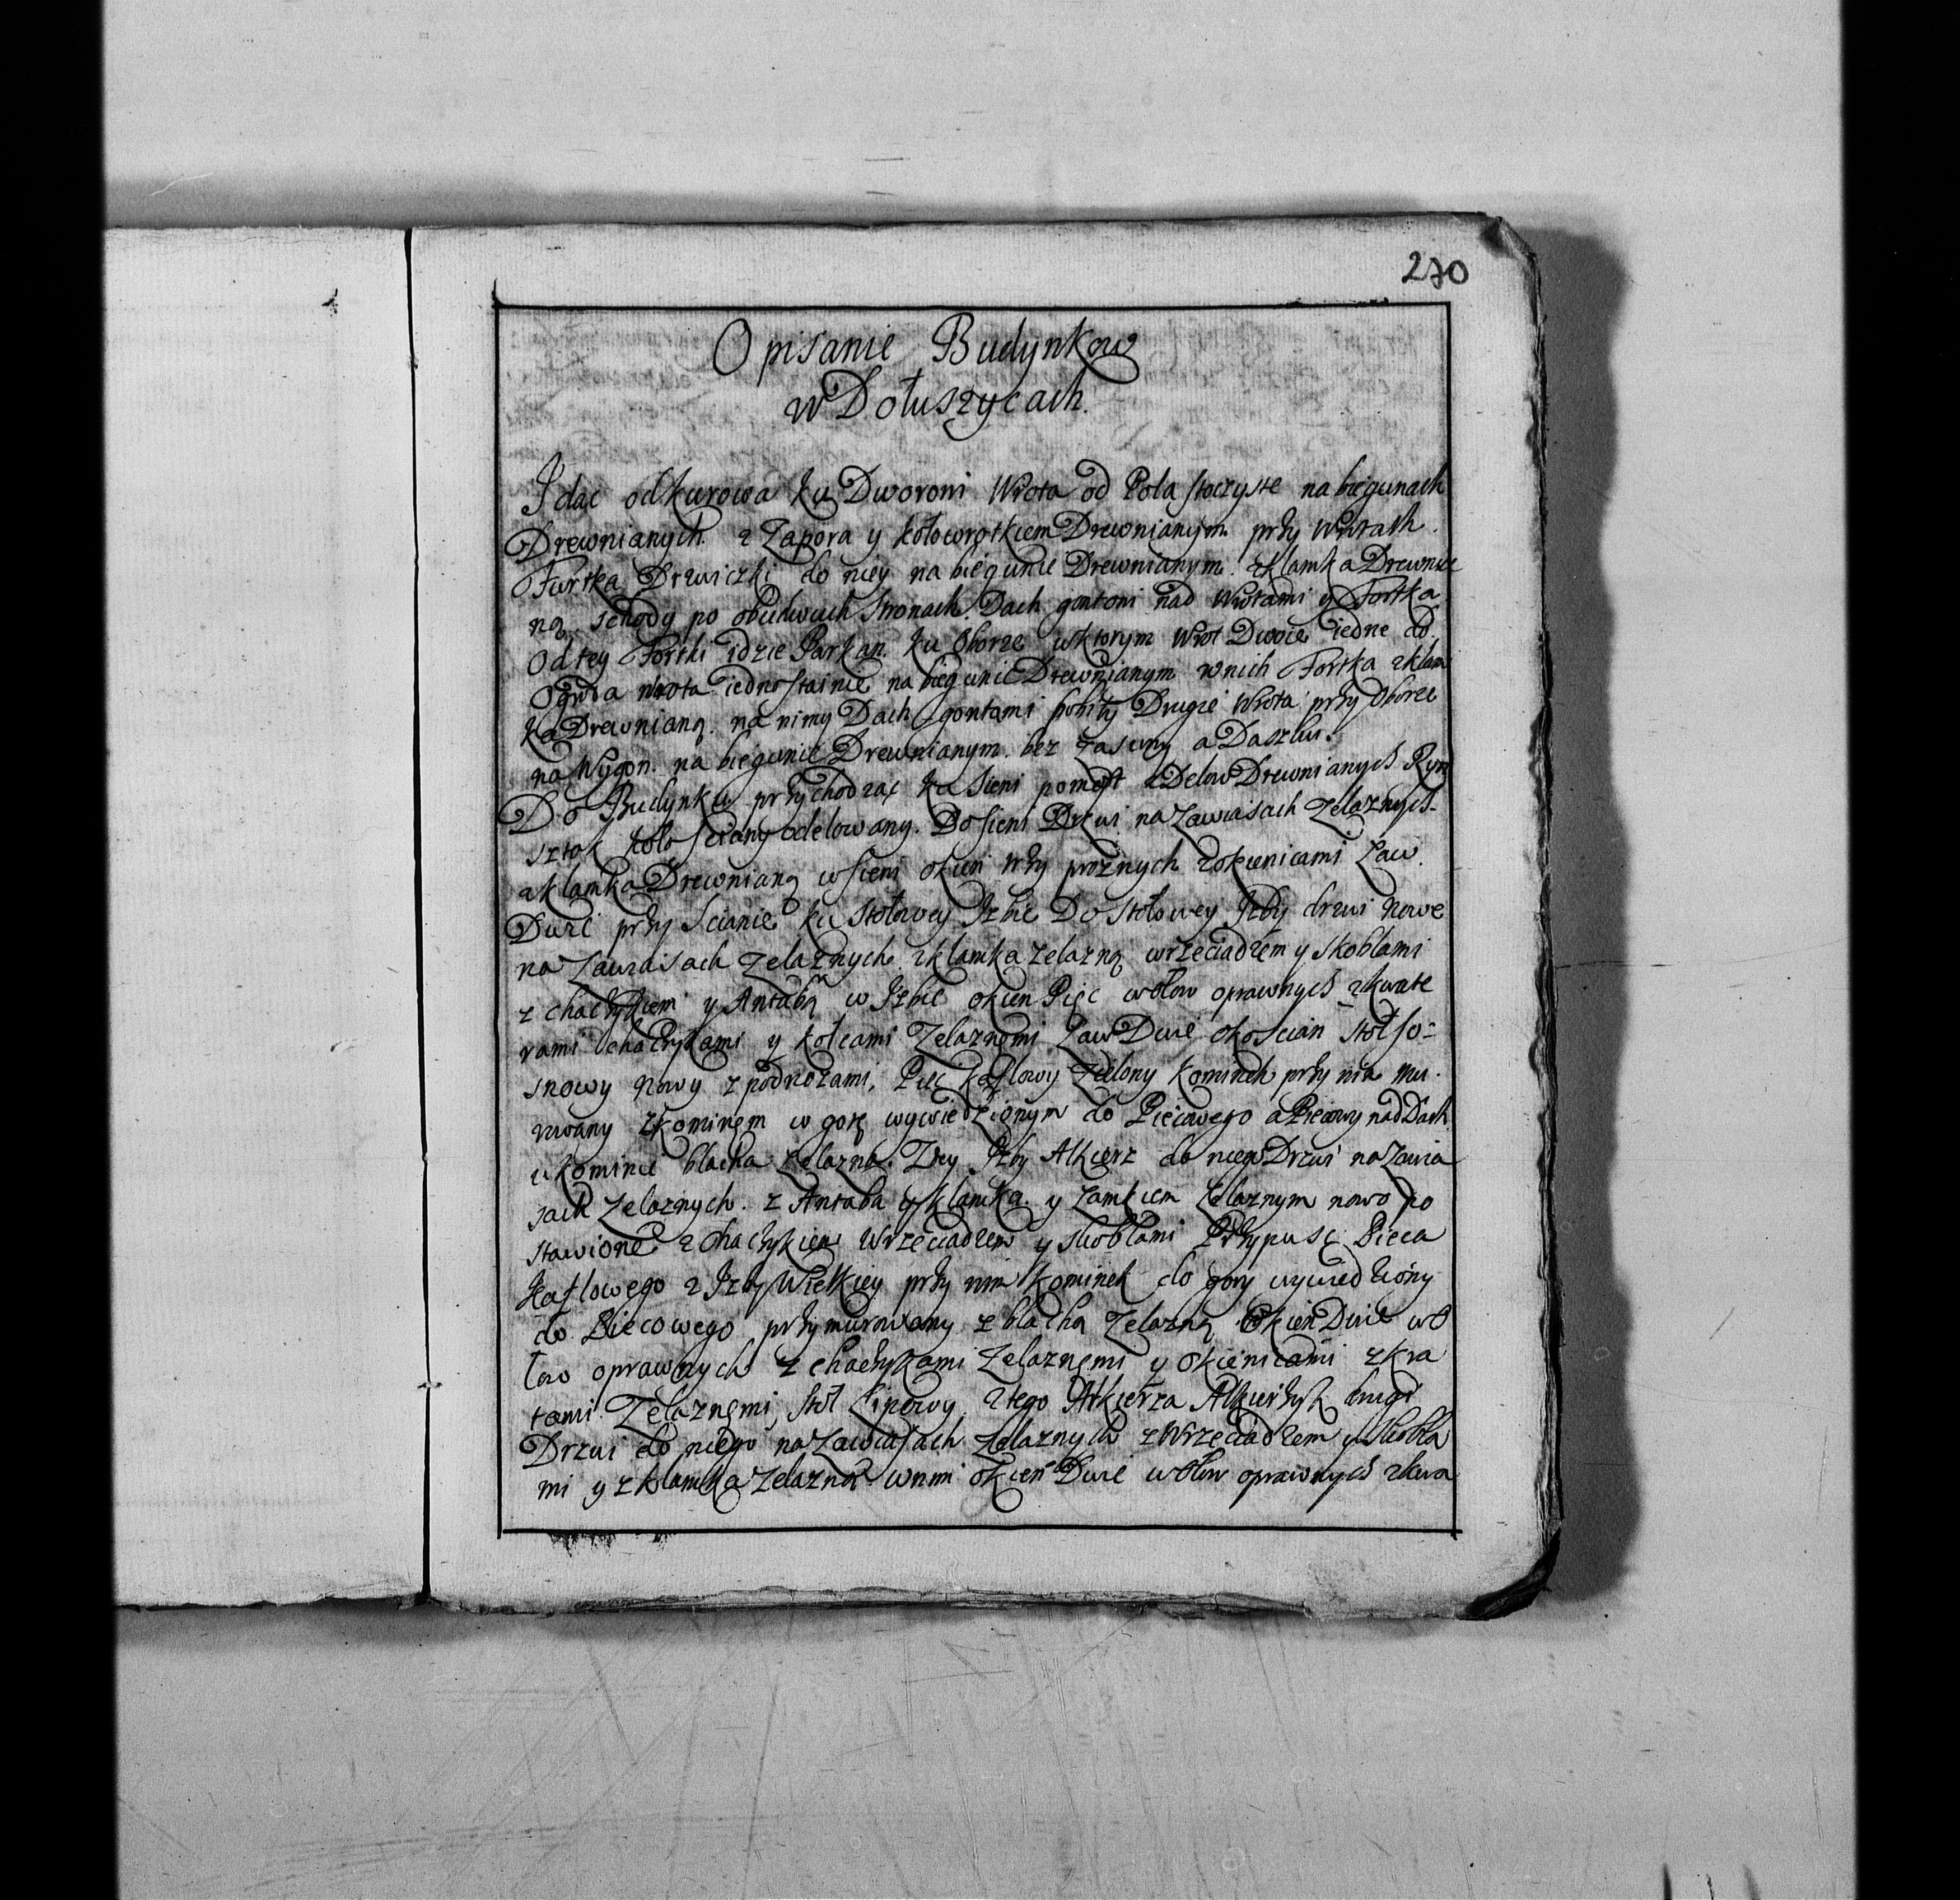 270
Opisanie Budynkow
w Dołuszycach.
Idąc od kurowa ku Dworowi Wrota od Pola stoczyste na biegunach
Drewnianych z Zapora y kołowrotkiem Drewnianym przy Wrotach
Furtka Drzwiczki do niey na biegunie Drewnianym z klamka Drewnia
ną schody po obudwuch stronach Dach gontowi nad Wrotami y Fortka
Od tey Fortki idzie Parkan ku Oborze w ktorym Wrot Dwoie iedne do
Ogroda wrota iednostainie na biegunie Drewnianym w nich Fortka z klam
ka Drewnianą na nimy Dach gontami pobity Drugie Wrota przy Oborze
na Wygon na biegunie Drewnianym bez zasuwy a Daszku.
Do Budynku przychodząc ku Sieni pomost z Delow Drewnianych Ryn
sztok koło sciany odelowany. Do sieni Drzwi na Zawiasach Zelaznych
a klamka Drewnianą w sieni okien trzy proznych z okienicami Ław
Dwie przy Scianie ku Stołowey Izbie Do Stołowey Izby drzwi nowe
na Zawiasach Zelaznych z klamka zelazną wrzeciadzem y skoblami
z chaczykiem y Antabą w Izbie okien Pięc w ołow oprawnych z kwate
rami chaczykami y kołcami Zelaznemi Ław Dwie około scian Stoł so-
snowy nowy z podnozami, Piec kaflowy zielony kominek przy nim mu-
rowany z kominem w gorę wywiedzionym do Piecowego a Piecowy nad Dach
u kominie blacha zelazna. Z tey Izby Alkierz do niego Drzwi na Zawia
sach Zelaznych z Antaba y klamka y zamkiem zelaznym nowo po
stawione z chaczykiem Wrzeciadzem y skoblami Przypusc Pieca
kaflowego z Izby Wielkiey przy nim kominek do gory wywiedziony
do Piecowego przymurowany z blacha Zelazną Okien Dwie w o
łow oprawnych z chaczykami Zelaznemi y okienicami z kra
tami Zelaznemi, stoł Lipowy, z tego Alkierza Alkierzyk drugi
Drzwi do niego na Zawiasach Zelaznych z Wrzeciadzem y Skobla
mi y z klamka Zelazną w nim okien Dwie w ołow oprawnych z kwa